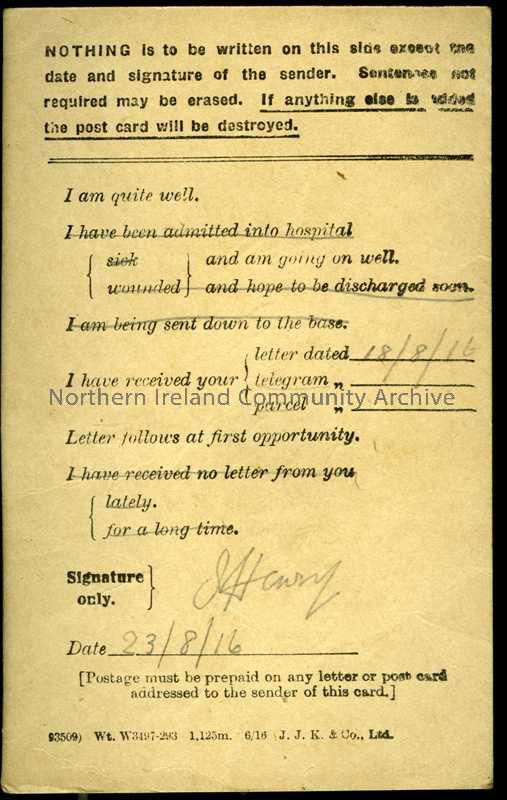 NOTHING is to be written on this side except the
date and signature of the sender. Sentences not
required may be erased. If anything else is added
the post card will be destroyed.
I am quite well.
I have been admitted into hospital
sick and am going on well.
wounded and hope to be discharged soon.
I am being sent down to the base.
letter dated 18/8/16
I have received your telegram „
parcel „
Northern Ireland Community Archive
Letter follows at first opportunity.
I have received no letter from you
lately.
for a long time.
Signature
only.
J Henry
Date 23/8/16
[Postage must be prepaid on any letter or post card
addressed to the sender of this card.]
93509) Wt. W3497-293 1,125m. 6/16 J. J. K. & Co., Ltd.